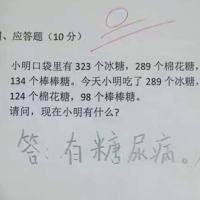 、应答题（10 分）
小明口袋里有 323 个冰糖，289 个棉花糖，
134 个棒棒糖。今天小明吃了 289 个冰糖，
124 个棉花糖，98 个棒棒糖。
请问，现在小明有什么？
答：有糖尿病。